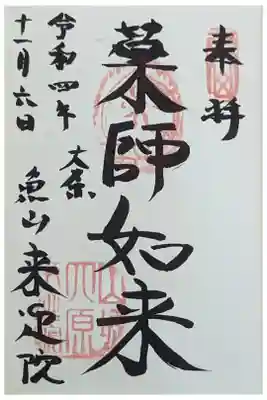 奉拝
薬師如来
令和四年
十一月六日
大原
魚山 来迎院